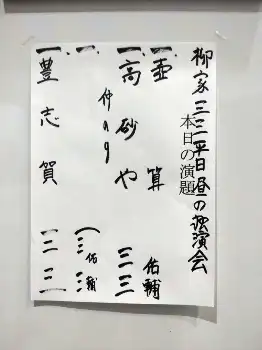 柳家三三平日昼の独演会
本日の演題
一.壷算 佑輔
一.高砂や 三三
仲入り
一. (三三 佑輔
一.豊志賀 三三